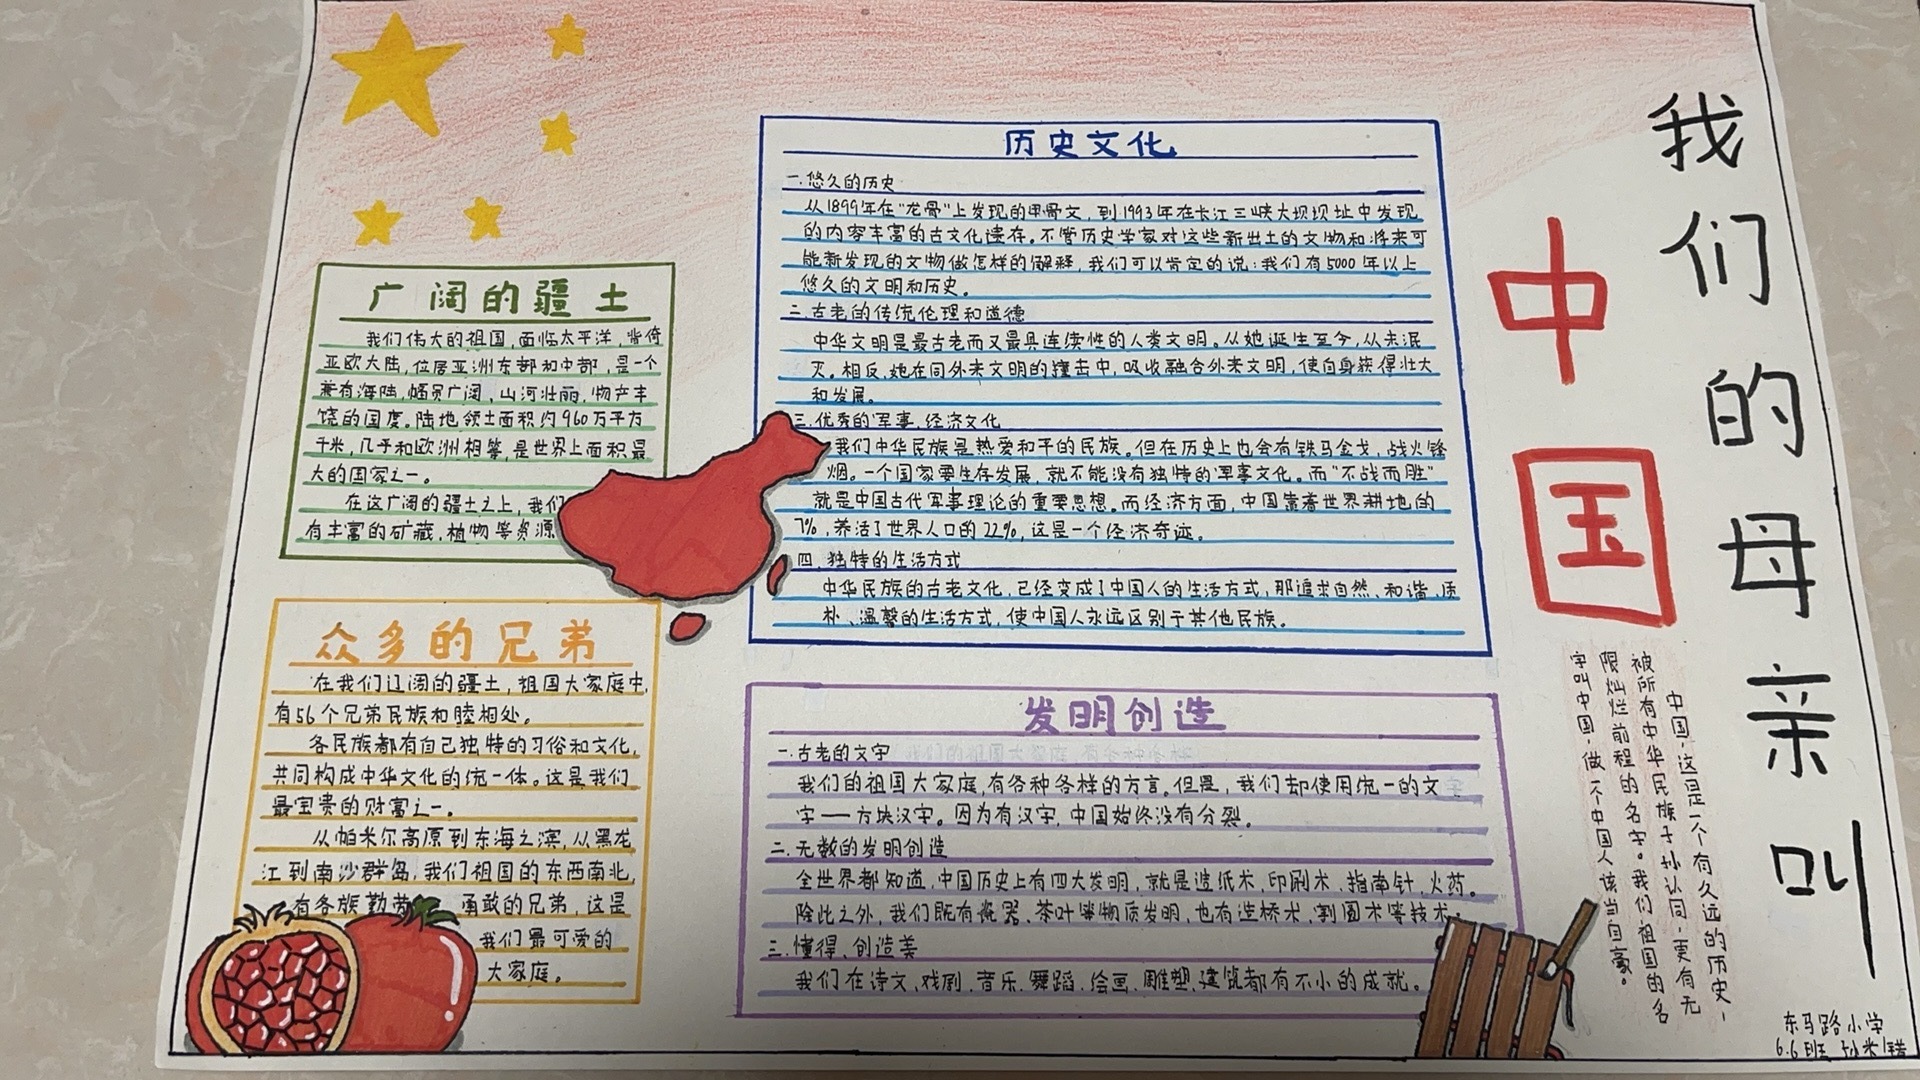 我们的母亲叫
中国
广阔的疆土
我们伟大的祖国,面临太平洋,背倚
亚欧大陆,位居亚洲东部和中部,是一个
兼有海陆,幅员广阔,山河壮丽,物产丰
饶的国度。陆地领土面积约960万平方
千米,几乎和欧洲相等,是世界上面积最
大的国家之一。
在这广阔的疆土之上,我们
有丰富的矿藏,植物等资源
众多的兄弟
在我们辽阔的疆土,祖国大家庭中,
有56个兄弟民族和睦相处。
各民族都有自己独特的习俗和文化,
共同构成中华文化的统一体。这是我们
最宝贵的财富之一。
从帕米尔高原到东海之滨,从黑龙
江到南沙群岛,我们祖国的东西南北,
有各族勤劳 勇敢的兄弟,这是
我们最可爱的
大家庭。
历史文化
一.悠久的历史
从1899年在“龙骨”上发现的甲骨文,到1993年在长江三峡大坝坝址中发现
的内容丰富的古文化遗存。不管历史学家对这些新出土的文物和将来可
能新发现的文物做怎样的解释,我们可以肯定的说:我们有5000年以上
悠久的文明和历史。
二.古老的传统伦理和道德
中华文明是最古老而又最具连续性的人类文明。从她诞生至今,从未泯
灭。相反,她在同外来文明的撞击中,吸收融合外来文明,使自身获得壮大
和发展。
三.优秀的军事、经济文化
我们中华民族是热爱和平的民族。但在历史上也会有铁马金戈,战火锋
烟。一个国家要生存发展,就不能没有独特的军事文化。而“不战而胜”
就是中国古代军事理论的重要思想。而经济方面,中国靠着世界耕地的
7%,养活了世界人口的22%,这是一个经济奇迹。
四.独特的生活方式
中华民族的古老文化,已经变成了中国人的生活方式,那追求自然、和谐、质
朴、温馨的生活方式,使中国人永远区别于其他民族。
发明创造
一.古老的文字
我们的祖国大家庭,有各种各样的方言。但是,我们却使用统一的文
字——方块汉字。因为有汉字,中国始终没有分裂。
二.无数的发明创造
全世界都知道,中国历史上有四大发明,就是造纸术、印刷术、指南针、火药。
除此之外,我们既有瓷器、茶叶等物质发明,也有造桥术、割圆术等技术。
三.懂得、创造美
我们在诗文、戏剧、音乐、舞蹈、绘画、雕塑、建筑都有不小的成就。
中国,这是一个有久远的历史,
被所有中华民族子孙认同,更有无
限灿烂前程的名字。我们祖国的名
字叫中国,做一个中国人该当自豪。
东马路小学
6.6班